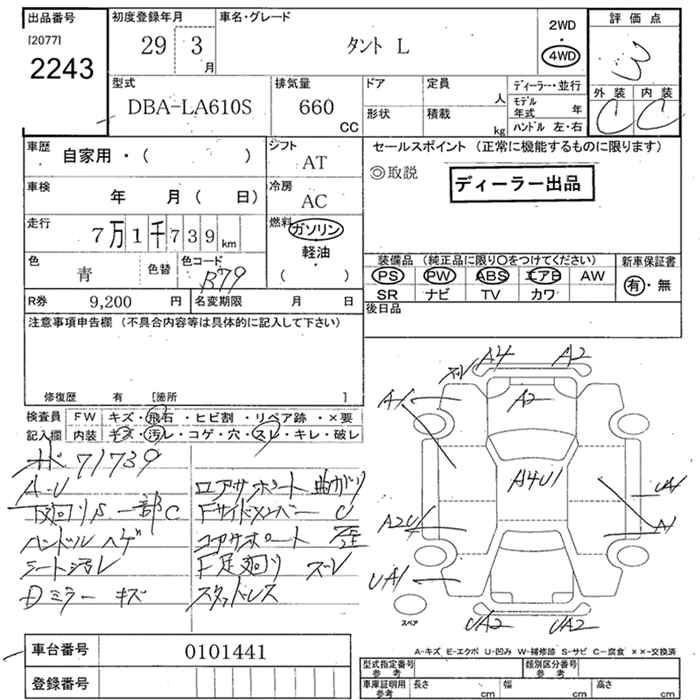 出品番号
[2077]
2243
初度登録年月
29 3 月
車名・グレード
タント L
2WD
・
4WD
評価点
3
外装 内装
C C
型式
DBA-LA610S
排気量
660
CC
ドア
形状
定員
人
積載
kg
ディーラー・並行
モデル年式 年
ハンドル 左・右
車歴
自家用・( )
シフト
AT
車検
年 月( 日)
冷房
AC
走行
7万1千739km
燃料
ガソリン
軽油
・
( )
色
青
色替
色コード
B79
R券 9,200 円
名変期限 月 日
セールスポイント (正常に機能するものに限ります)
◎取説
ディーラー出品
装備品 (純正品に限り〇をつけてください)
PS PW ABS エアB AW
SR ナビ TV カワ
新車保証書
有・無
後日品
注意事項申告欄 (不具合内容等は具体的に記入して下さい)
修復歴 有 [箇所 ]
検査員
記入欄
FW キズ・飛石・ヒビ割・リペア跡・×要
内装 キズ・汚レ・コゲ・穴・スレ・キレ・破レ
71739
A-U
下廻りS一部C
ハンドルハゲ
シート汚レ
Dミラー キズ
ロアサポート曲ガリ
FサイドメンバーU
コアサポート歪
F足廻り スレ
スタッドレス
A4 A2
A1
A2
A4U1
A2U
UA1
UA2 UA2
スペア
A-キズ E-エクボ U-凹み W-補修跡 S-サビ C-腐食 ××-交換済
車台番号 0101441
登録番号
型式指定番号
参考
類別区分番号
参考
車庫証明用
参考
長さ cm
幅 cm
高さ cm